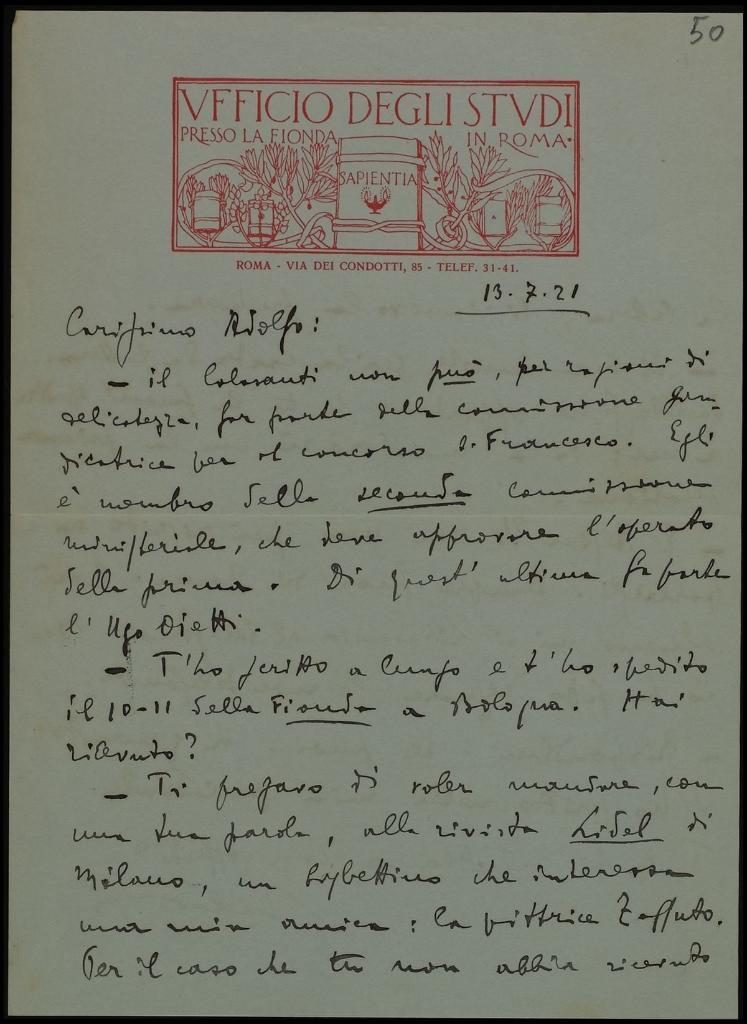 50
VFFICIO DEGLI STVDI
PRESSO LA FIONDA IN ROMA
SAPIENTIA
ROMA - VIA DEI CONDOTTI, 85 - TELEF. 31-41.
13.7.21
Carissimo Adolfo:
— il Colasanti non può, per ragioni di
delicatezza, far parte della commissione giu-
dicatrice per il concorso S. Francesco. Egli
è membro della seconda commissione
ministeriale, che deve approvare l'operato
della prima. Di quest'ultima fa parte
l'Ugo Ojetti.
— T'ho scritto a lungo e t'ho spedito
il 10-11 della Fionda a Bologna. Hai
ricevuto?
— Ti pregavo di voler mandare, con
una tua parola, alla rivista Lidel di
Milano, un soffiettino che interessa
una mia amica: la pittrice Zaffuto.
Per il caso che tu non abbia ricevuto